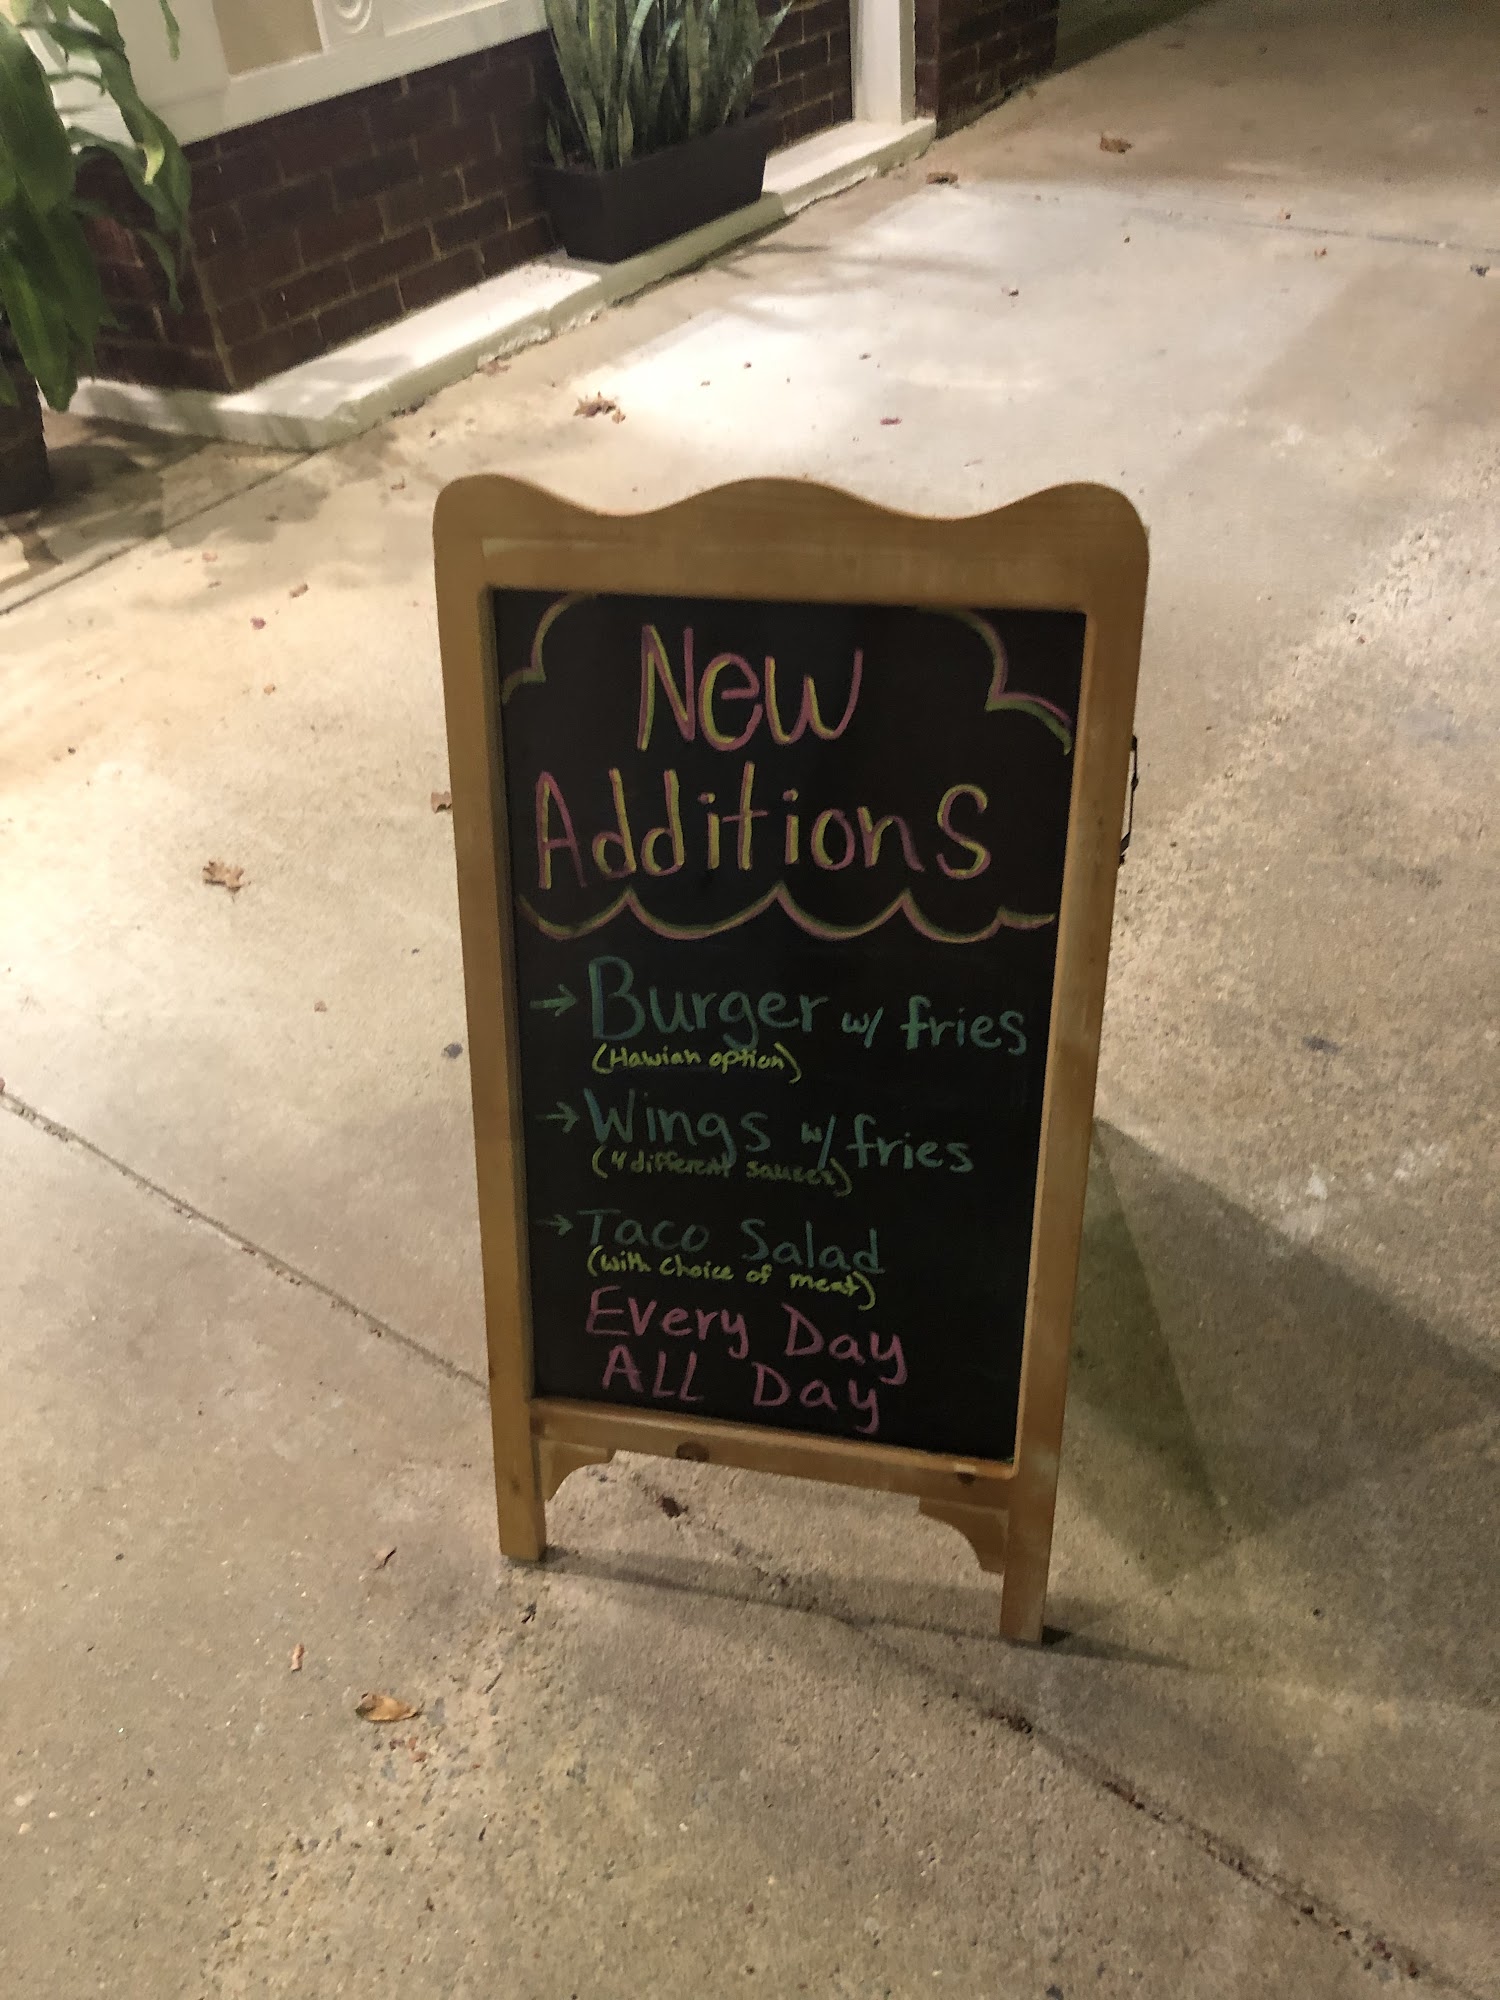 New
Additions
→ Burger w/ fries
(Hawiian option)
→ Wings w/ fries
(4 different sauces)
→ Taco Salad
(with choice of meat)
Every Day
ALL Day